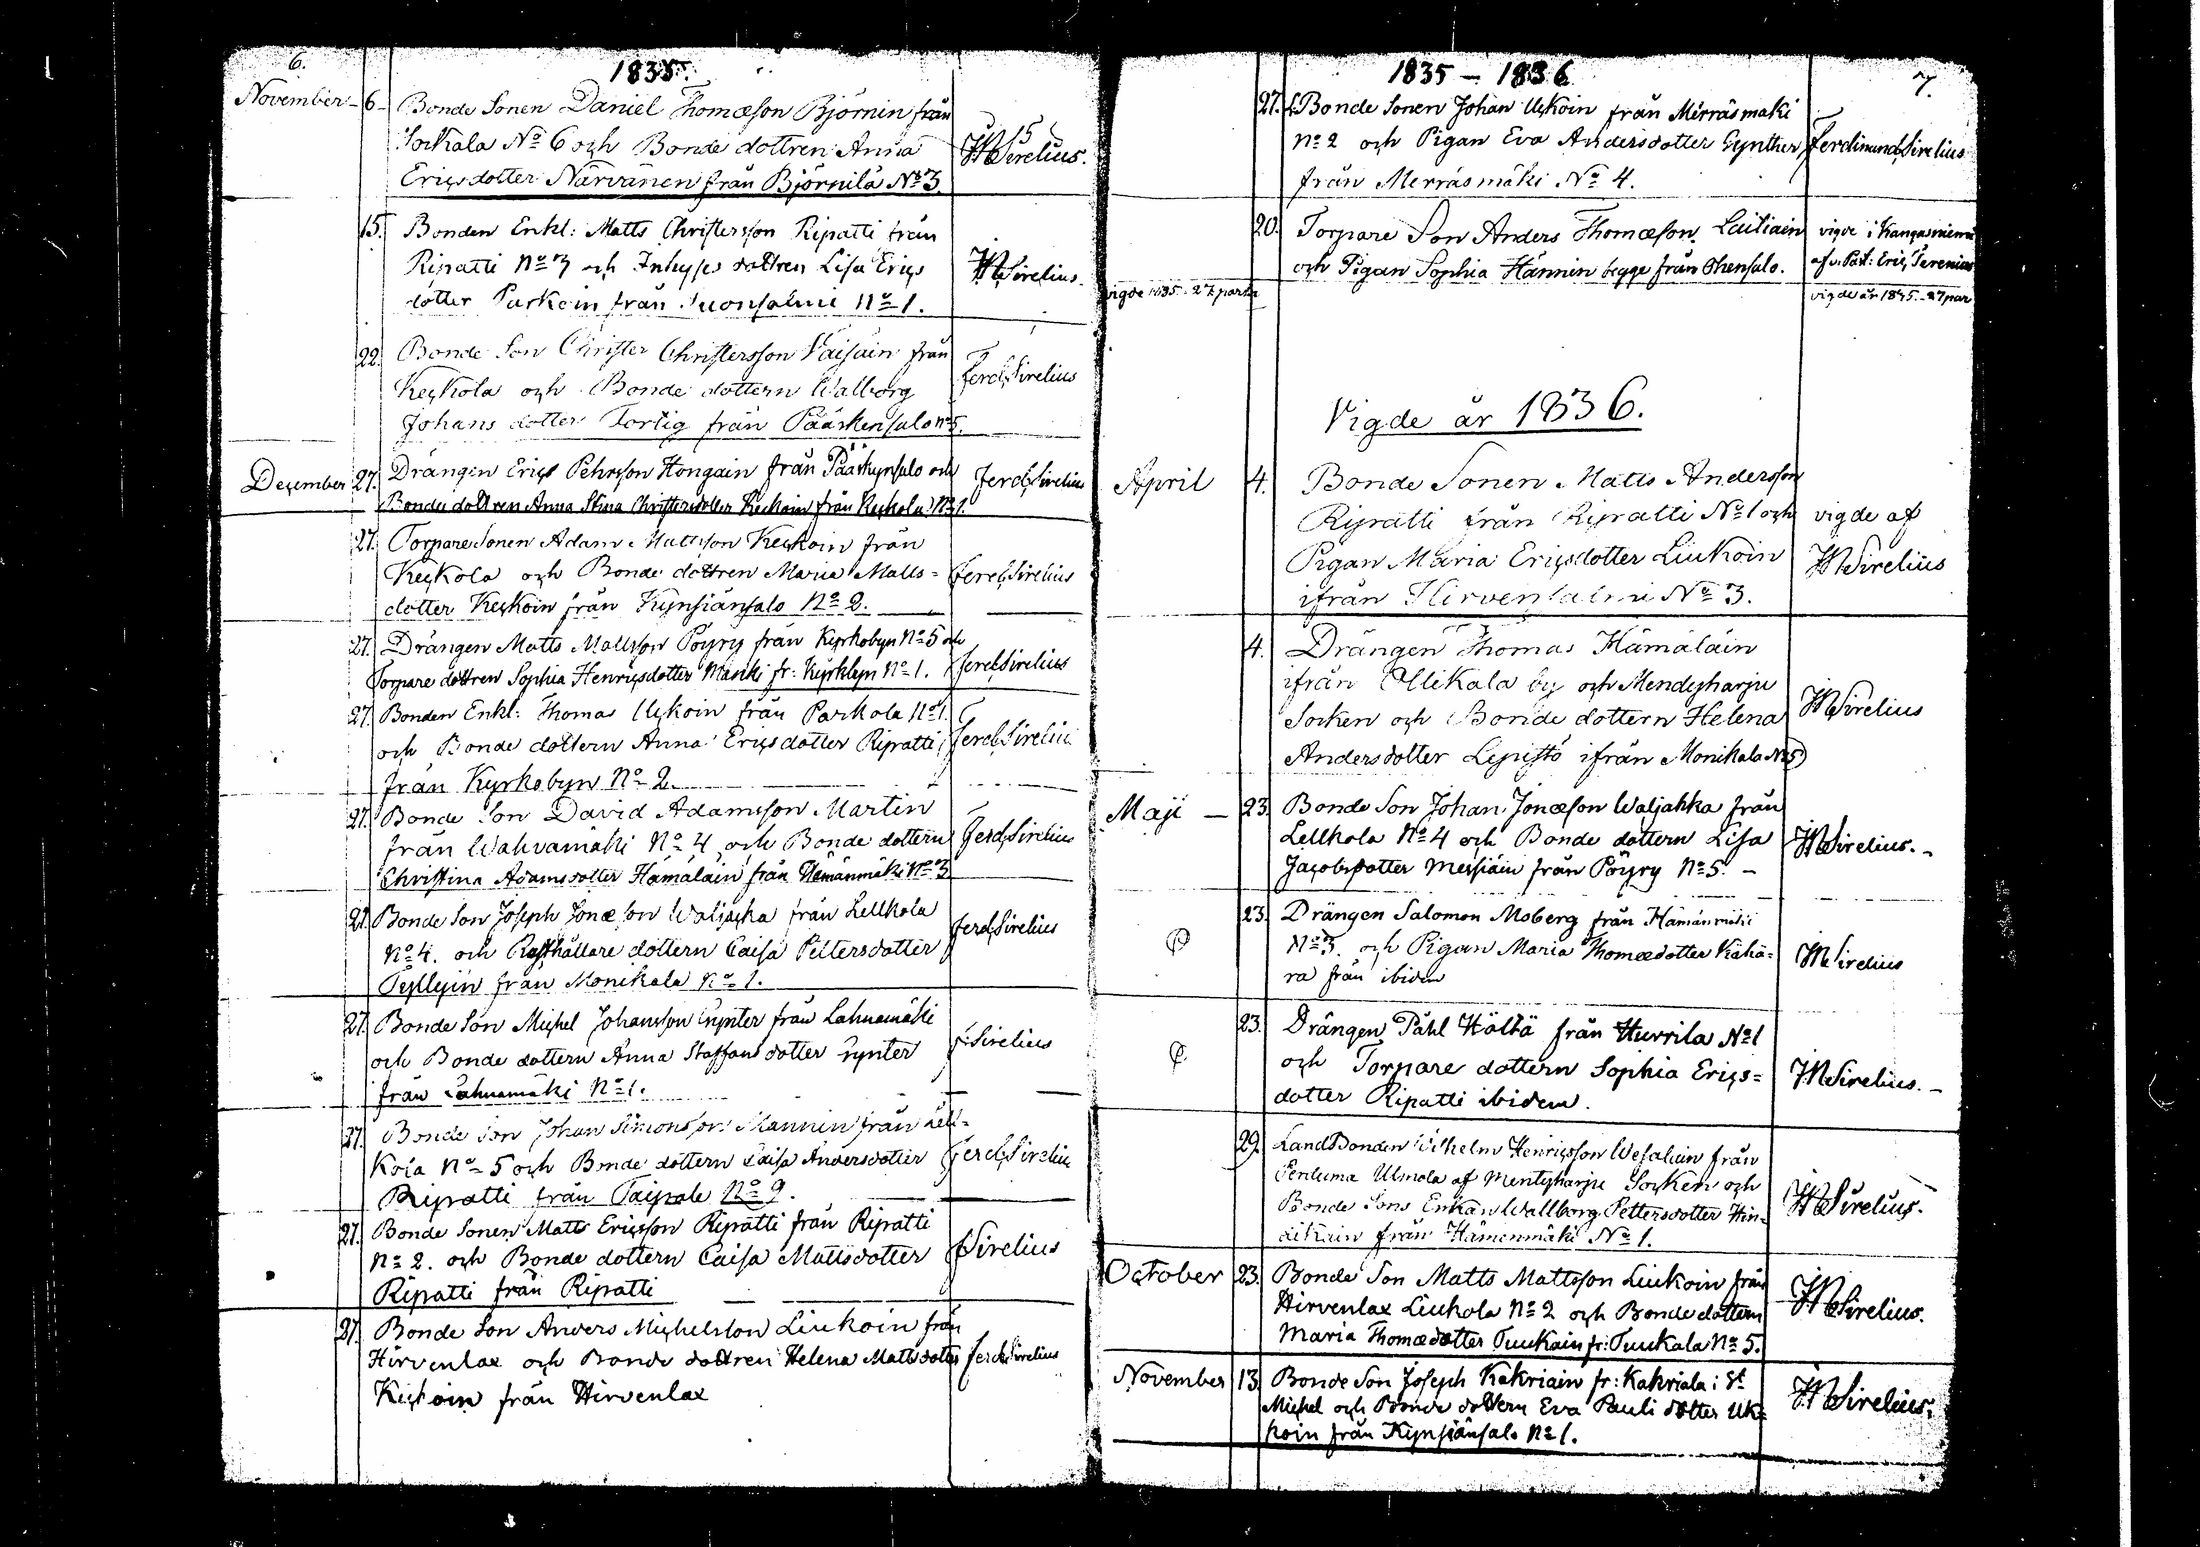 6.
1835.
November - 6 - Bonde Sonen Daniel Thomæson Björnin från
Sockala No 6 och Bonde dottren Anna
Ericsdotter Narvanen från Björnilä No 3.
Sirelius.
15. Bonden Enkl: Matts Christersson Ripatti från
Ripatti No 7 och Inhyses dottren Lisa Erics
dotter Parkoin från Suonsalmi No 1.
Sirelius.
22. Bonde Son Christer Christersson Väisäin från
Keckola och Bonde dottern Walborg
Johans dotter Tortig från Pääskensalo No 5.
Ferd. Sirelius
December 27. Drängen Eric Pehrsson Hongain från Pääskynsalo och
Bonde dottren Anna Stina Christersdotter Keckoin från Keckola No 1.
Ferd. Sirelius
27. Torpare Sonen Adam Mattsson Keckoin från
Keckola och Bonde dottren Maria Matts=
dotter Keckoin från Kynsiänsalo No 2.
Ferd. Sirelius
27. Drängen Matts Mattsson Pöyry från Kyrkobyn No 5 och
Torpare dottren Sophia Henricsdotter Manki fr: Kyrkbyn No 1.
Ferd. Sirelius
27. Bonden Enkl: Thomas Uckoin från Parkola No 1.
och Bonde dottern Anna Ericsdotter Ripatti
från Kyrkobyn No 2.
Ferd. Sirelius
27. Bonde Son David Adamsson Martin
från Wahvamäki No 4 och Bonde dottern
Christina Adamsdotter Hämäläin från Hämänmäki No 3
Ferd. Sirelius
27. Bonde Son Joseph Jonæson Waljacka från Lellkola
No 4. och Rusthållare dottern Caisa Pettersdotter
Tyllyin från Monikala No 1.
Ferd. Sirelius
27. Bonde Son Michel Johansson Gynter från Lahnamäki
och Bonde dottern Anna Staffansdotter Gynter
från Lahnamäki No 1.
F. Sirelius
27. Bonde Son Johan Simonsson Mannin från Lell=
kola No 5 och Bonde dottern Caisa Andersdotter
Ripatti från Taipale No 9.
Ferd. Sirelius
27. Bonde Sonen Matts Ericsson Ripatti från Ripatti
No 2. och Bonde dottern Caisa Mattsdotter
Ripatti från Ripatti
F. Sirelius
27. Bonde Son Anders Michelsson Liukoin från
Hirvenlax och Bonde dottren Helena Mattsdotter
Keckoin från Hirvenlax
Ferd. Sirelius
1835 - 1836
7.
27. Bonde Sonen Johan Uckoin från Merräsmäki
No 2 och Pigan Eva Andersdotter Gynther
från Merräsmäki No 4.
Ferdinand Sirelius
20. Torpare Son Anders Thomæson Laitiain
och Pigan Sophia Hännin begge från Ohensalo.
vigde i Kangasniemi
af v. Past: Eric Perenius
vigde 1835. 27 parhr
vigde år 1835. 27 par
Vigde år 1836.
April 4. Bonde Sonen Matts Andersson
Ripatti från Ripatti No 1 och
Pigan Maria Ericsdotter Liukoin
ifrån Hirvensalmi No 3.
vigde af
Sirelius
4. Drängen Thomas Hämäläin
ifrån Ollikala by och Mendyharju
Socken och Bonde dottern Helena
Andersdotter Lepistö ifrån Monikala No 5
Sirelius
Maji - 23. Bonde Son Johan Jonæson Waljahka från
Lellkola No 4 och Bonde dottern Lisa
Jacobsdotter Messiäin från Pöyry No 5. -
Sirelius. -
23. Drängen Salomon Moberg från Hämänmäki
No 3. och Pigan Maria Thomædotter Kähä=
ra från ibidem
Sirelius
23. Drängen Påhl Hölttä från Hurrila No 1
och Torpare dottern Sophia Erics=
dotter Ripatti ibidem.
Sirelius. -
29. LandBonden Wilhelm Henricsson Wesalain från
Perduma Ulmala af Mentyharju Socken och
Bonde Sons Enkan Wallborg Pettersdotter Hin=
dikain från Hämenmäki No 1.
Sirelius.
October 23. Bonde Son Matts Mattsson Liukoin från
Hirvenlax Liukola No 2 och Bonde dottern
Maria Thomædotter Tuukain fr: Tuukala No 5.
Sirelius.
November 13. Bonde Son Joseph Kakriain fr: Kakriala i St
Michel och Bonde dottern Eva Pauli dotter Uk=
koin från Kynsiänsalo No 1.
Sirelius.